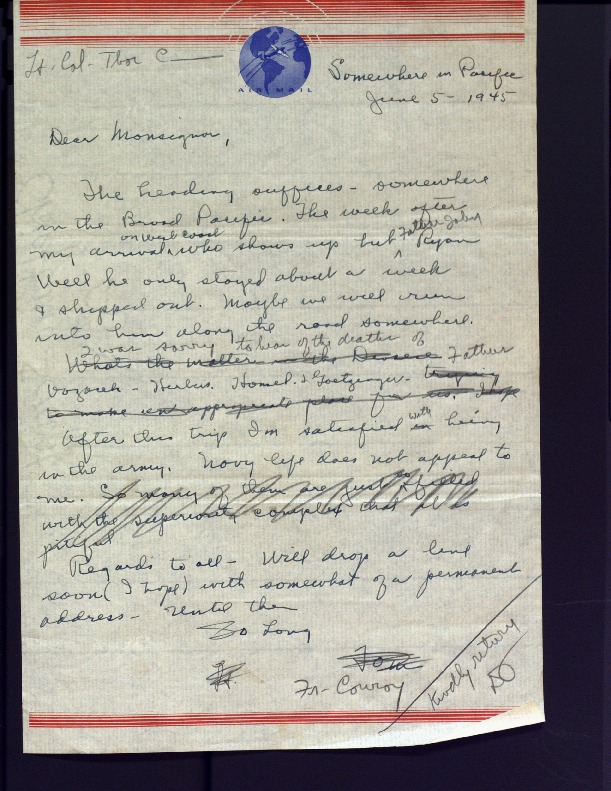 Lt. Col - Thos C
AIR MAIL
Somewhere in Pacific
June 5 - 1945
Dear Monsignor,
The heading suffices - somewhere
in the Broad Pacific. The week after
on west coast
my arrival who shows up but Father John Ryan
Well he only stayed about a week
& shipped out. Maybe we will run
into him along the road somewhere.
I was sorry to hear of the deaths of
Whats the matter in the Diocese Father
Hamel & Goetzinger - trying
to make an appropriate place for us. I hope
After this trip I'm satisfied with in being
in the army. Navy life does not appeal to
me. So many of them are just filled
with the superiority complex that it is
pitiful
Regards to all - Will drop a line
soon (I hope) with somewhat of a permanent
address - Until then
So Long
Tom
Fr - Conroy
Kindly return